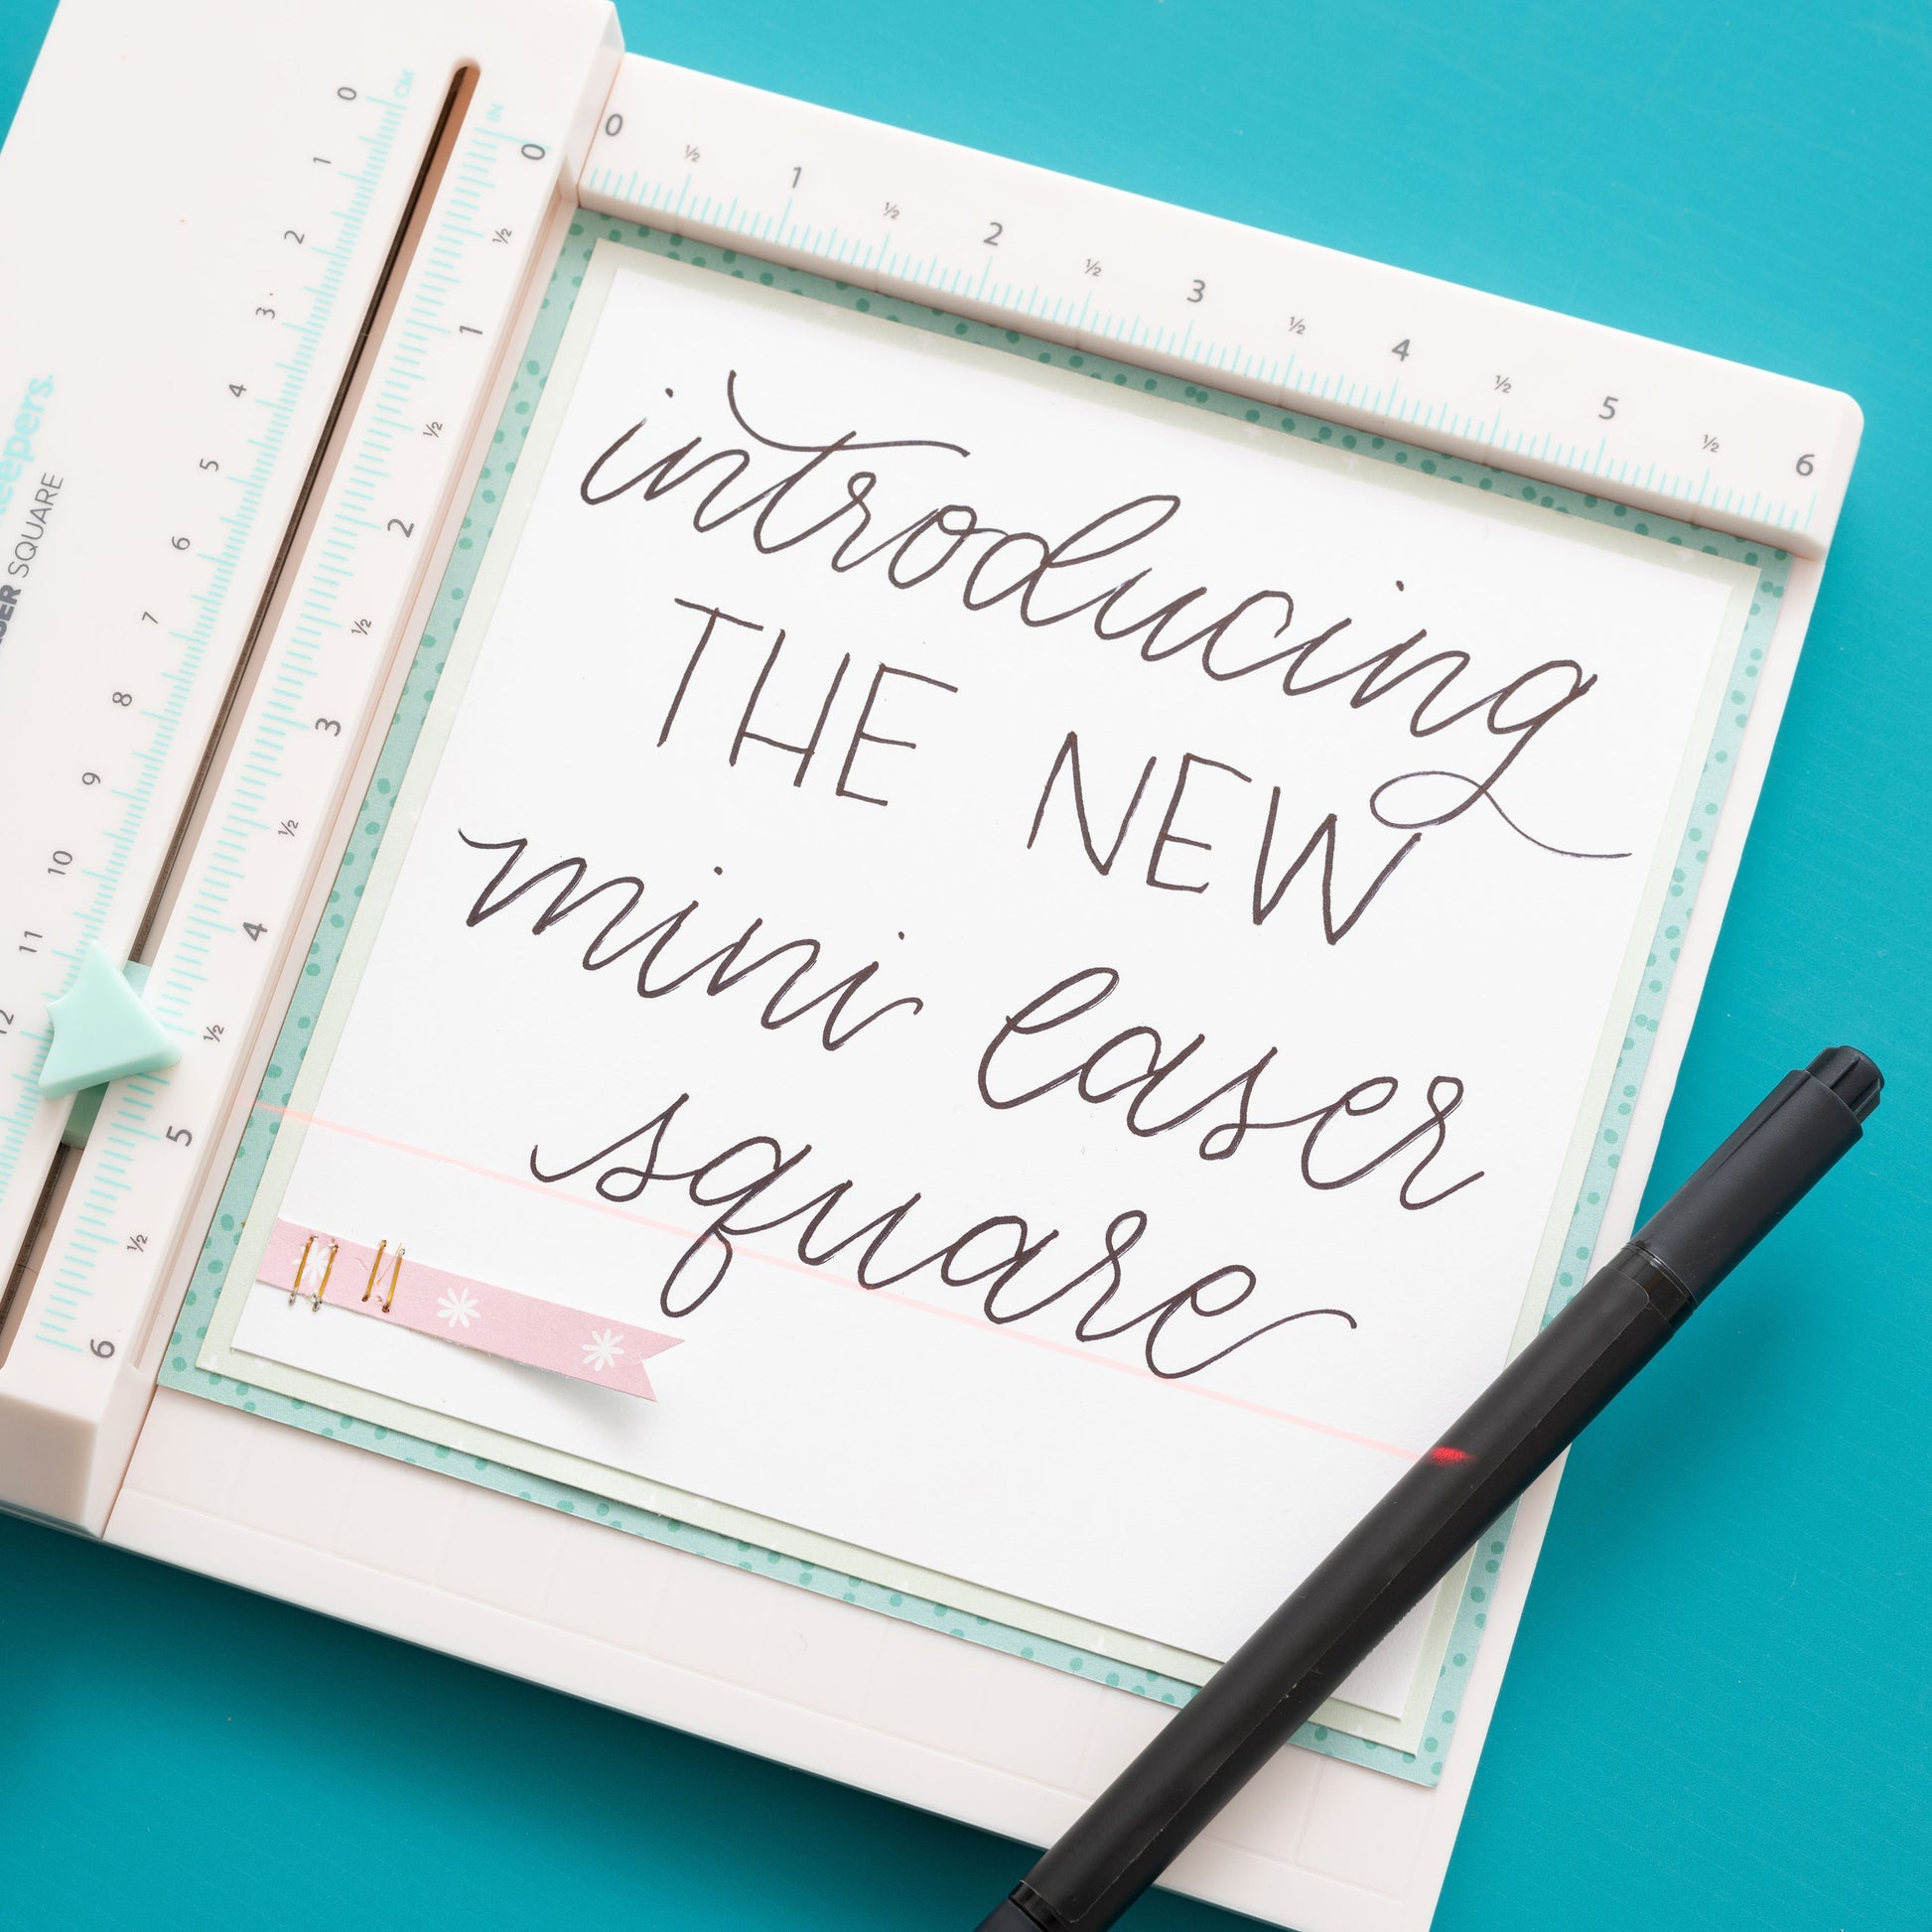 introducing
THE NEW
mini laser
square
0 ½ 1 ½ 2 ½ 3 ½ 4 ½ 5 ½ 6
IN
0 ½ 1 ½ 2 ½ 3 ½ 4 ½ 5 ½ 6
CM
0 1 2 3 4 5 6 7 8 9 10 11 12
keepers.
SQUARE